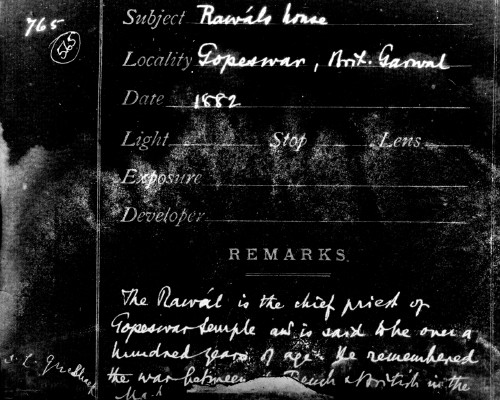 765
565
Subject Rawáls house
Locality Gopeswar, Brit. Garwal
Date 1882
Light Stop Lens
Exposure
Developer
REMARKS
The Rawál is the chief priest of
Gopeswar temple and is said to be over a
hundred years of age. He remembered
the war between French & British in the